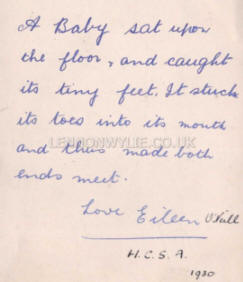 A Baby sat upon
the floor, and caught
its tiny feet. It stuck
its toes into its mouth
LENNONWYLIE.CO.UK
and thus made both
ends meet.
Love Eileen O'Neill
H.C.S.A.
1930